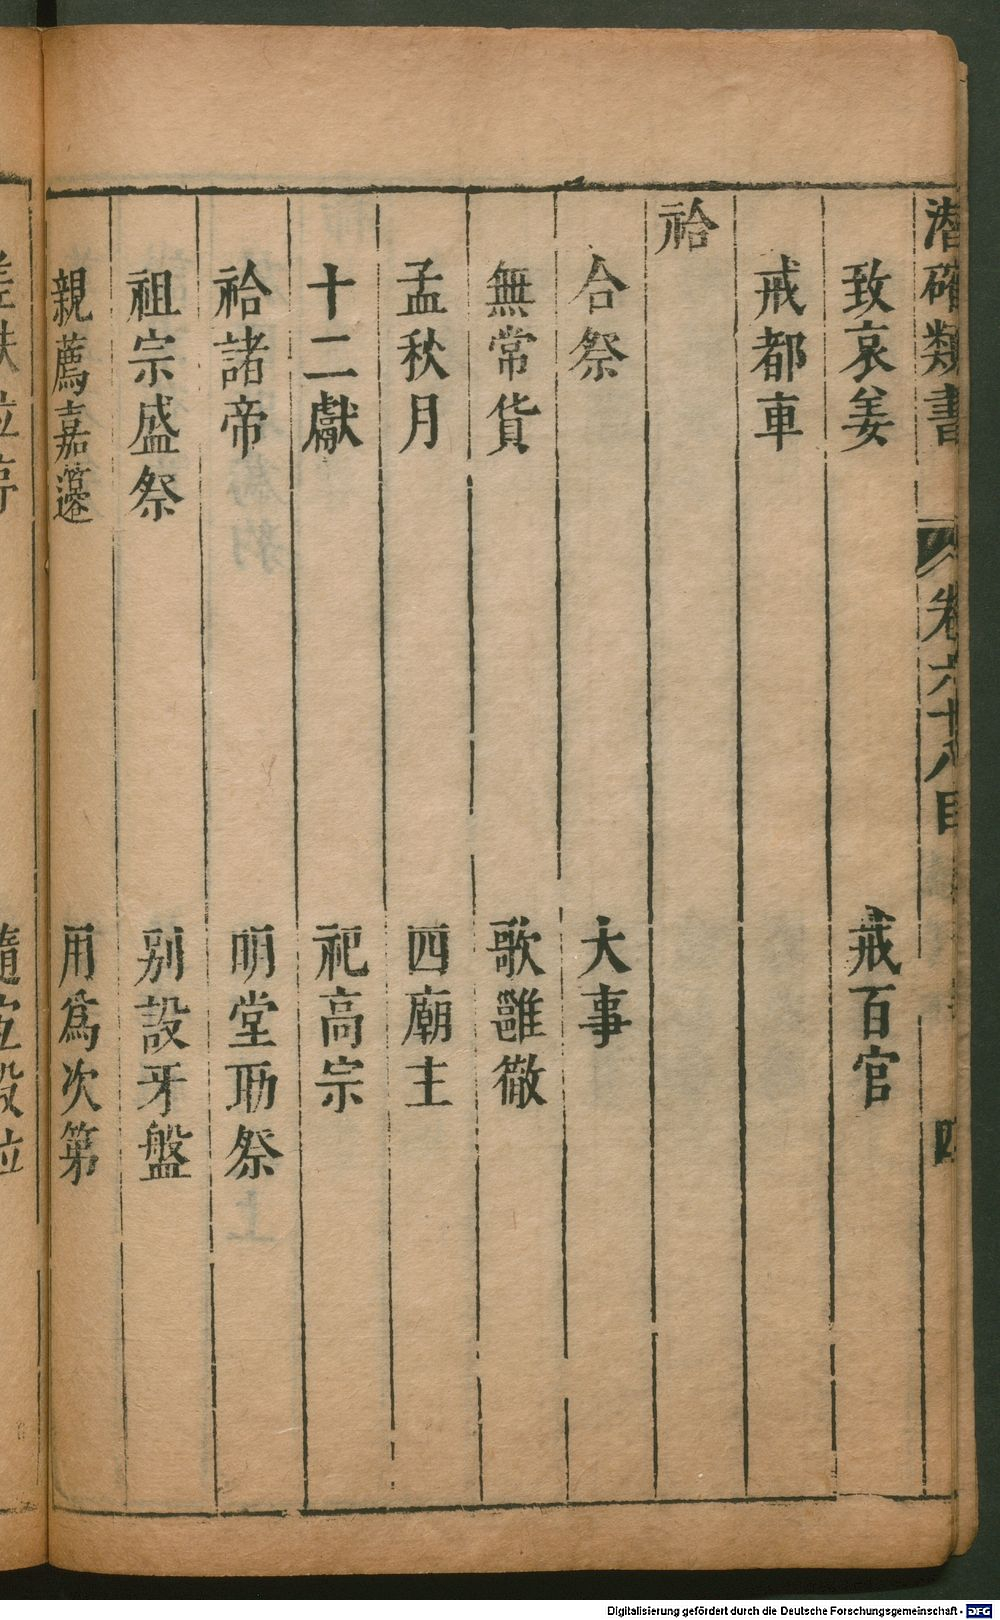 潜確類書 卷六十八目 四
致哀姜 戒百官
戒都車
祫
合祭 大事
無常貨 歌雝徹
孟秋月 四廟主
十二獻 祀高宗
祫諸帝 明堂耡祭
祖宗盛祭 别設牙盤
親薦嘉籩 用爲次第
Digitalisierung gefördert durch die Deutsche Forschungsgemeinschaft - DFG